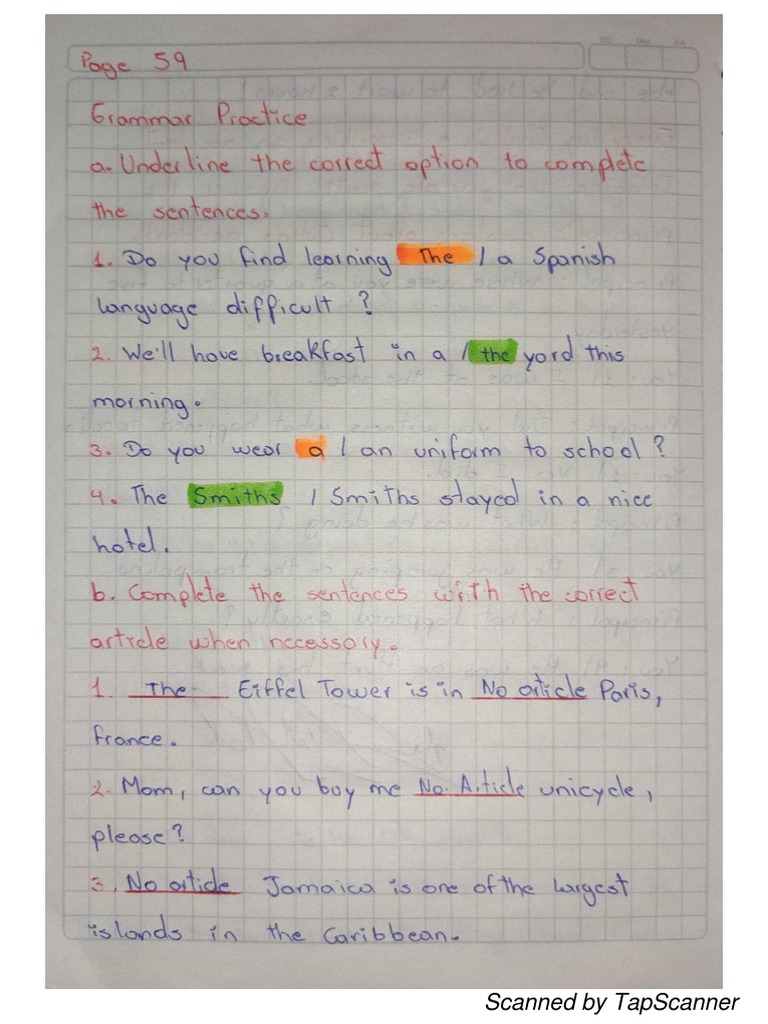 Page 59
Grammar Practice
a. Underline the correct option to complete
the sentences.
1. Do you find learning The / a Spanish
language difficult ?
2. We'll have breakfast in a / the yard this
morning.
3. Do you wear a / an uniform to school ?
4. The Smiths / Smiths stayed in a nice
hotel.
b. Complete the sentences with the correct
article when necessary.
1. The Eiffel Tower is in No article Paris,
France.
2. Mom, can you buy me No Article unicycle,
please?
3. No article Jamaica is one of the largest
islands in the Caribbean.
Scanned by TapScanner